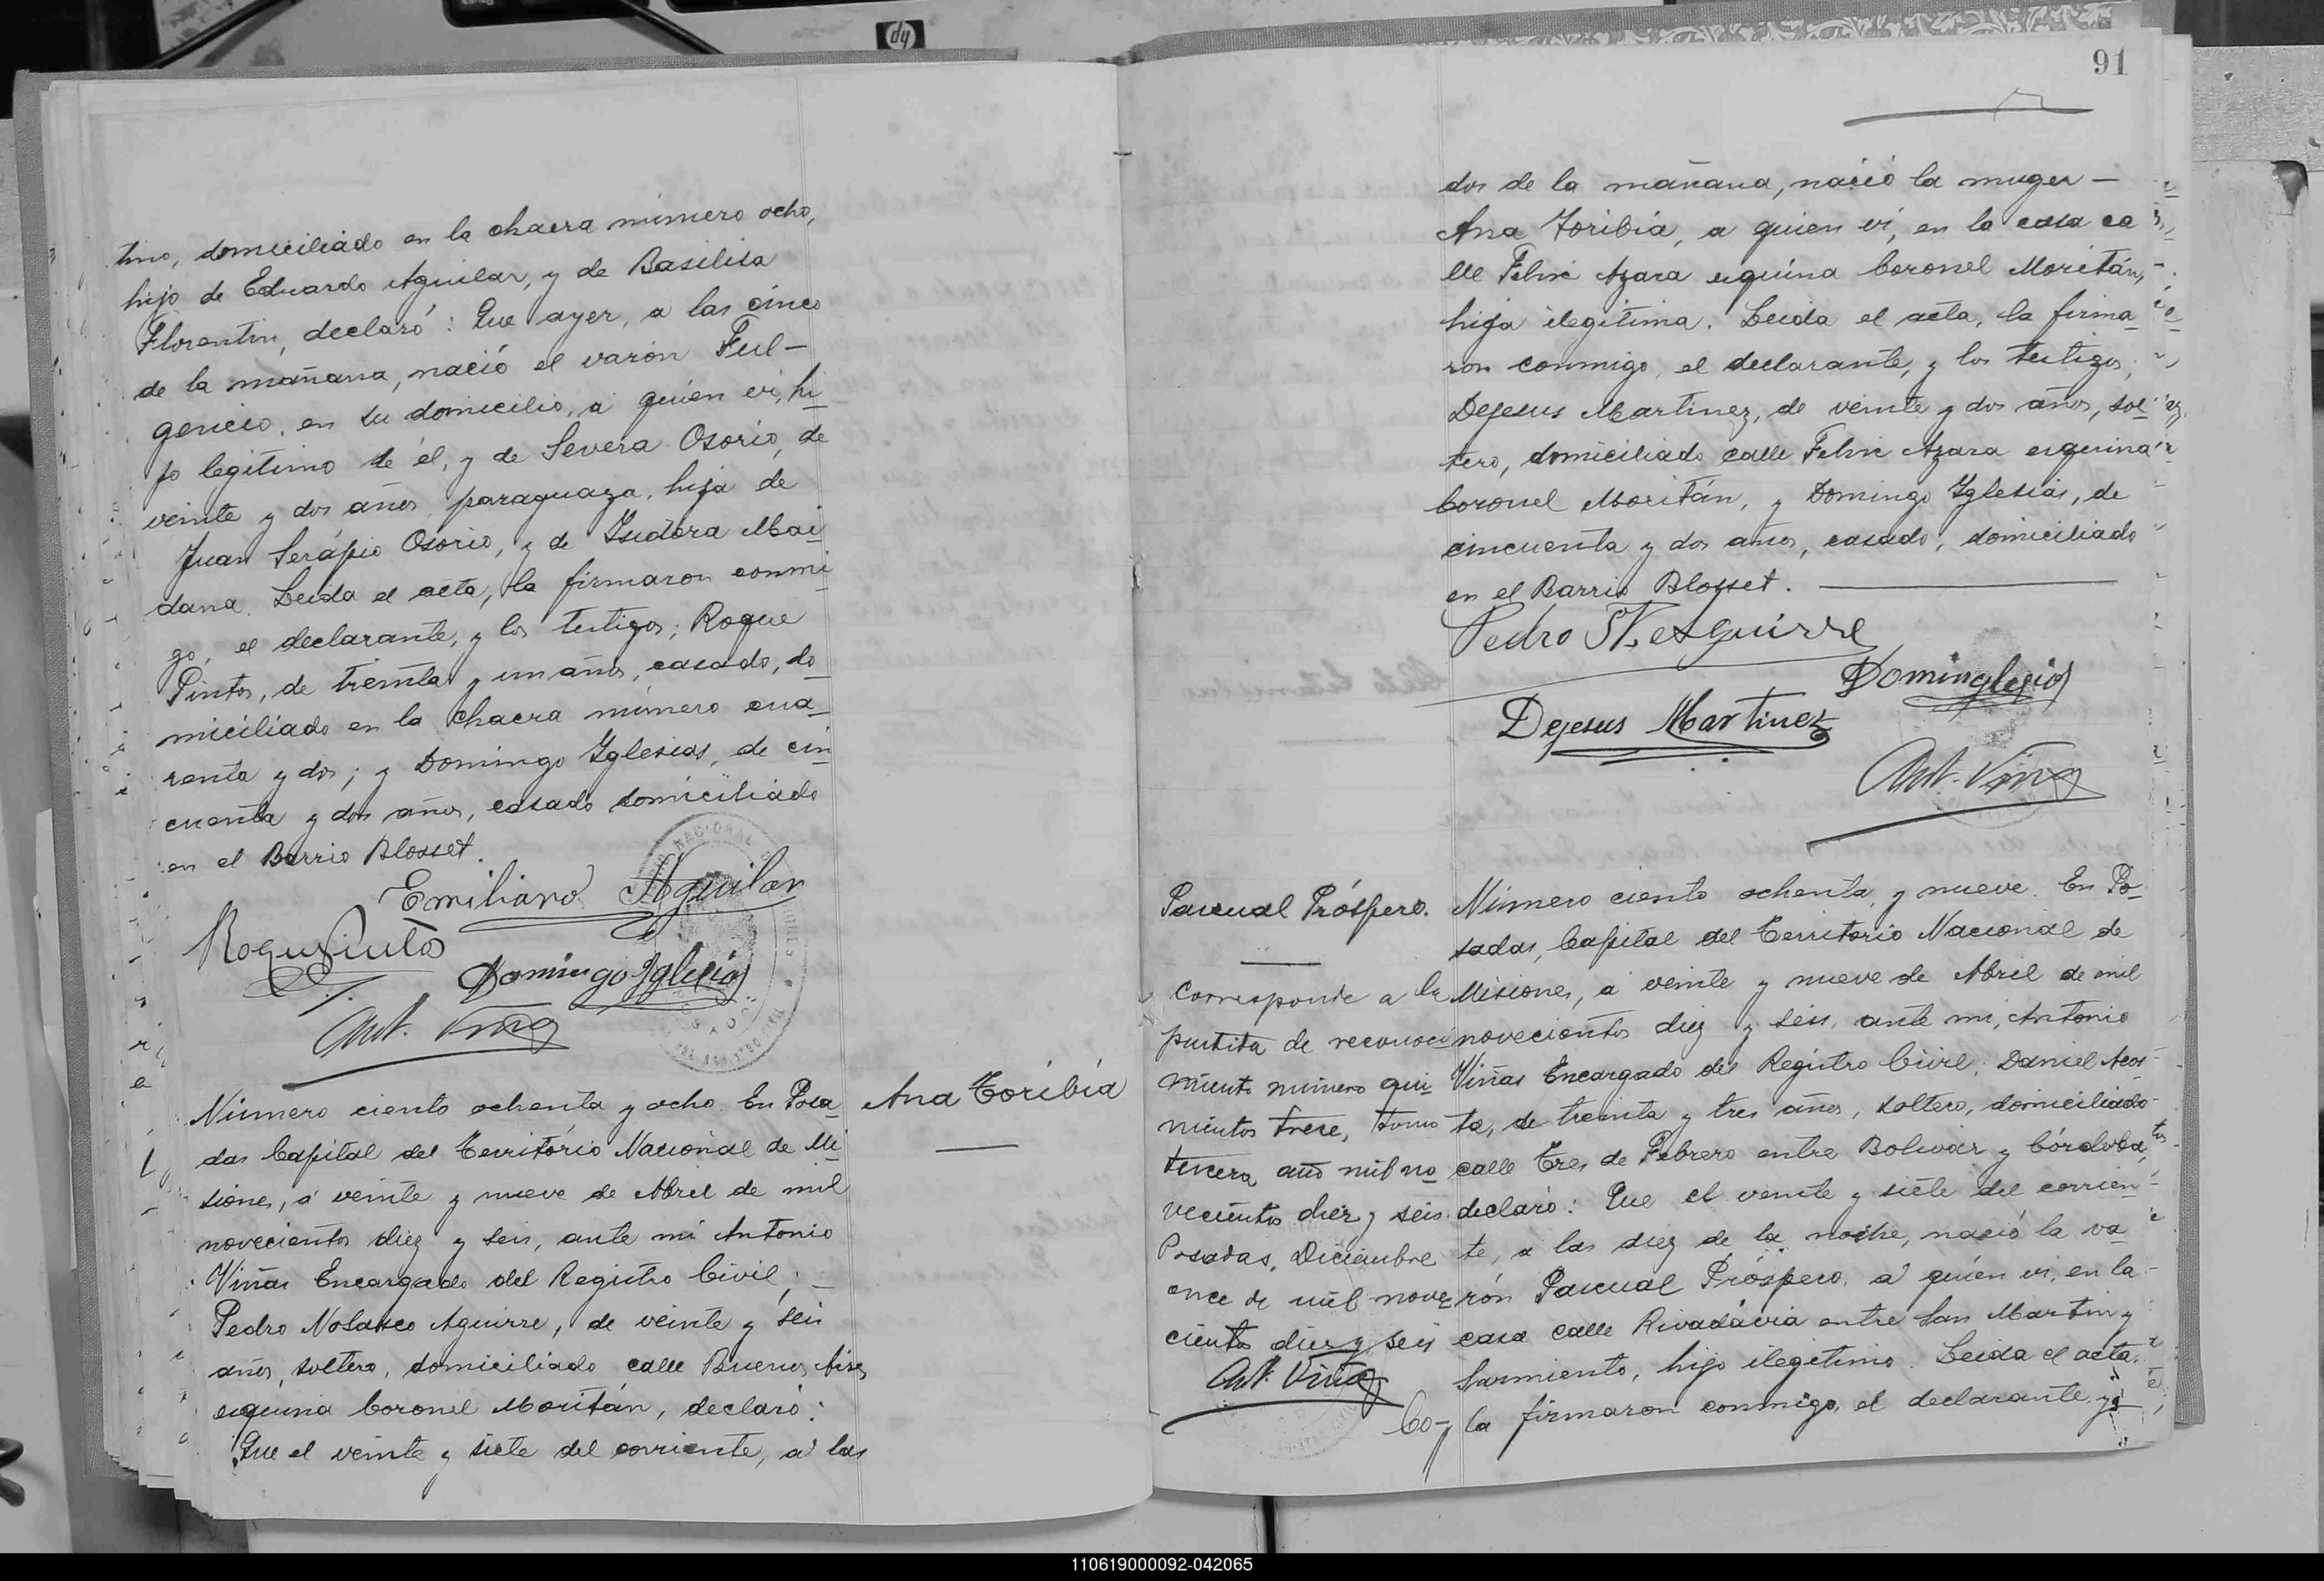 hp
tino, domiciliado en la chacra número ocho,
hijo de Eduardo Aguilar, y de Basilisa
Florentin, declaró: Que ayer, a las cinco
de la mañana, nació el varón Ful-
gencio, en su domicilio, a quien vi, hi
jo legitimo de él, y de Severa Osorio, de
veinte y dos años, paraguaya, hija de
Juan Serápio Osorio, y de Isidora Mai
dana. Leida el acta, la firmaron conmi
go, el declarante, y los testigos; Roque
Pintos, de treinta y un años, casado, do
miciliado en la chacra número cua
renta y dos; y Domingo Yglesias, de cin
cuenta y dos años, casado domiciliado
en el Barrio Blosset.
Emiliano Aguilar
Roque Pinto
Domingo Yglesias
Ant. Viñas
Ana Toribia
Número ciento ochenta y ocho. En Posa
das Capital del Territorio Nacional de Mi
siones, á veinte y nueve de Abril de mil
novecientos diez y seis, ante mi Antonio
Viñas Encargado del Registro Civil;
Pedro Nolasco Aguirre, de veinte y seis
años, soltero, domiciliado calle Buenos Aires
esquina Coronel Moritán, declaró:
Que el veinte y siete del corriente, a las
91
dos de la mañana, nació la muger -
Ana Toribia, a quien vi, en la casa ca
lle Felix Azara esquina Coronel Moritán,
hija ilegitima. Leida el acta, la firma
ron conmigo, el declarante, y los testigos;
Dejesus Martinez, de veinte y dos años, sol
tero, domiciliado calle Felix Azara esquina
Coronel Moritán, y Domingo Yglesias, de
cincuenta y dos años, casado, domiciliado
en el Barrio Blosset.
Pedro N. Aguirre
Dejesus Martinez
Ant. Viñas
Pascual Próspero.
Corresponde a la
partida de reconoci
miento número qui
nientos trece, tomo
tercero, año mil no
vecientos diez y seis.
Posadas, Diciembre
once de mil nove
cientos diez y seis
Ant. Viñas
Número ciento ochenta, y nueve. En Po
sadas, Capital del Territorio Nacional de
Misiones, á veinte y nueve de Abril de mil
novecientos diez y seis, ante mi, Antonio
Viñas Encargado del Registro Civil; Daniel Acos
ta, de treinta y tres años, soltero, domiciliado
calle Tres de Febrero entre Bolivar y Córdoba,
declaró: Que el veinte y siete del corrien
te, a las diez de la noche, nació la va
rón Pascual Próspero, a quien vi, en la
casa calle Rivadavia entre San Martin y
Sarmiento, hijo ilegitimo. Leida el acta,
la firmaron conmigo, el declarante, y
110619000092-042065